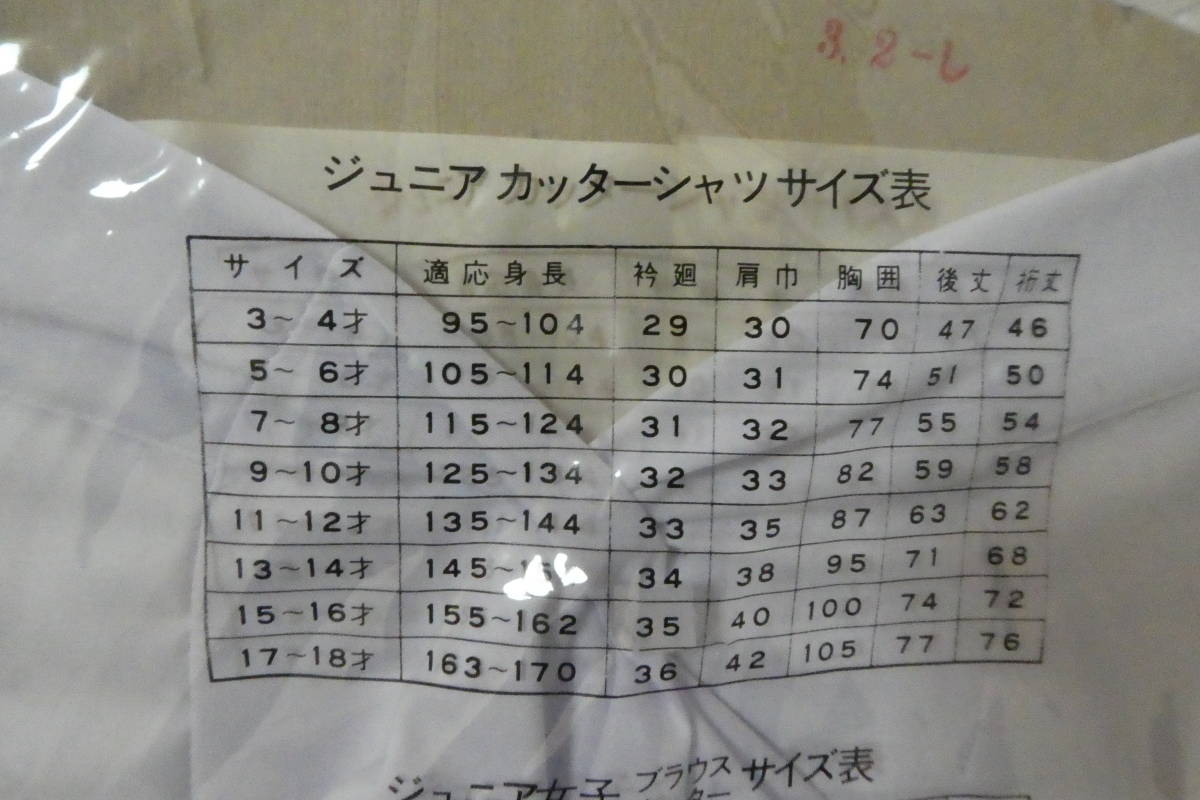 3.2-L
ジュニア カッターシャツ サイズ表
サイズ 適応身長 衿廻 肩巾 胸囲 後丈 裄丈
3～4才 95～104 29 30 70 47 46
5～6才 105～114 30 31 74 51 50
7～8才 115～124 31 32 77 55 54
9～10才 125～134 32 33 82 59 58
11～12才 135～144 33 35 87 63 62
13～14才 145～ 34 38 95 71 68
15～16才 155～162 35 40 100 74 72
17～18才 163～170 36 42 105 77 76
ジュニア女子 ブラウス サイズ表